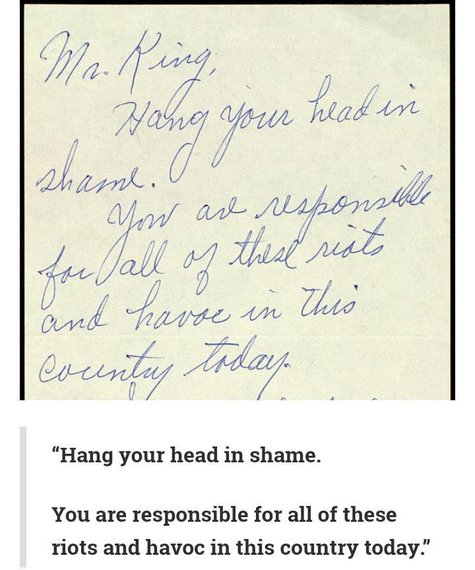 Mr. King,
Hang your head in
shame.
You are responsible
for all of these riots
and havoc in this
country today.
“Hang your head in shame.
You are responsible for all of these
riots and havoc in this country today.”